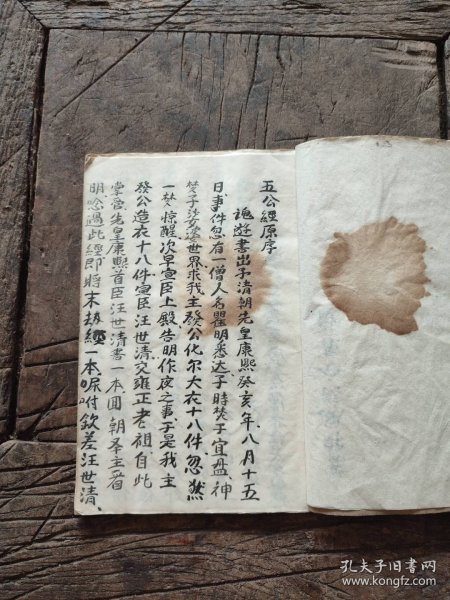 五公經原序
詭遊書出于清朝先皇康熙癸亥年八月十五
日事件忽有一僧人名瞿明悉达子時焚于宜盘神
焚子法安等世界求我主發公化尔大衣十八件忽然
一梦惊醒次早宣臣上殿告明作夜之事于是我主
發公造衣十八件宣臣汪世清交雍正老祖自此
掌管先皇康熙首臣汪世清書一本回朝圣主着
明唸過此經即将末劫經一本嘱咐欽差汪世清
孔夫子旧书网
www.kongfz.com